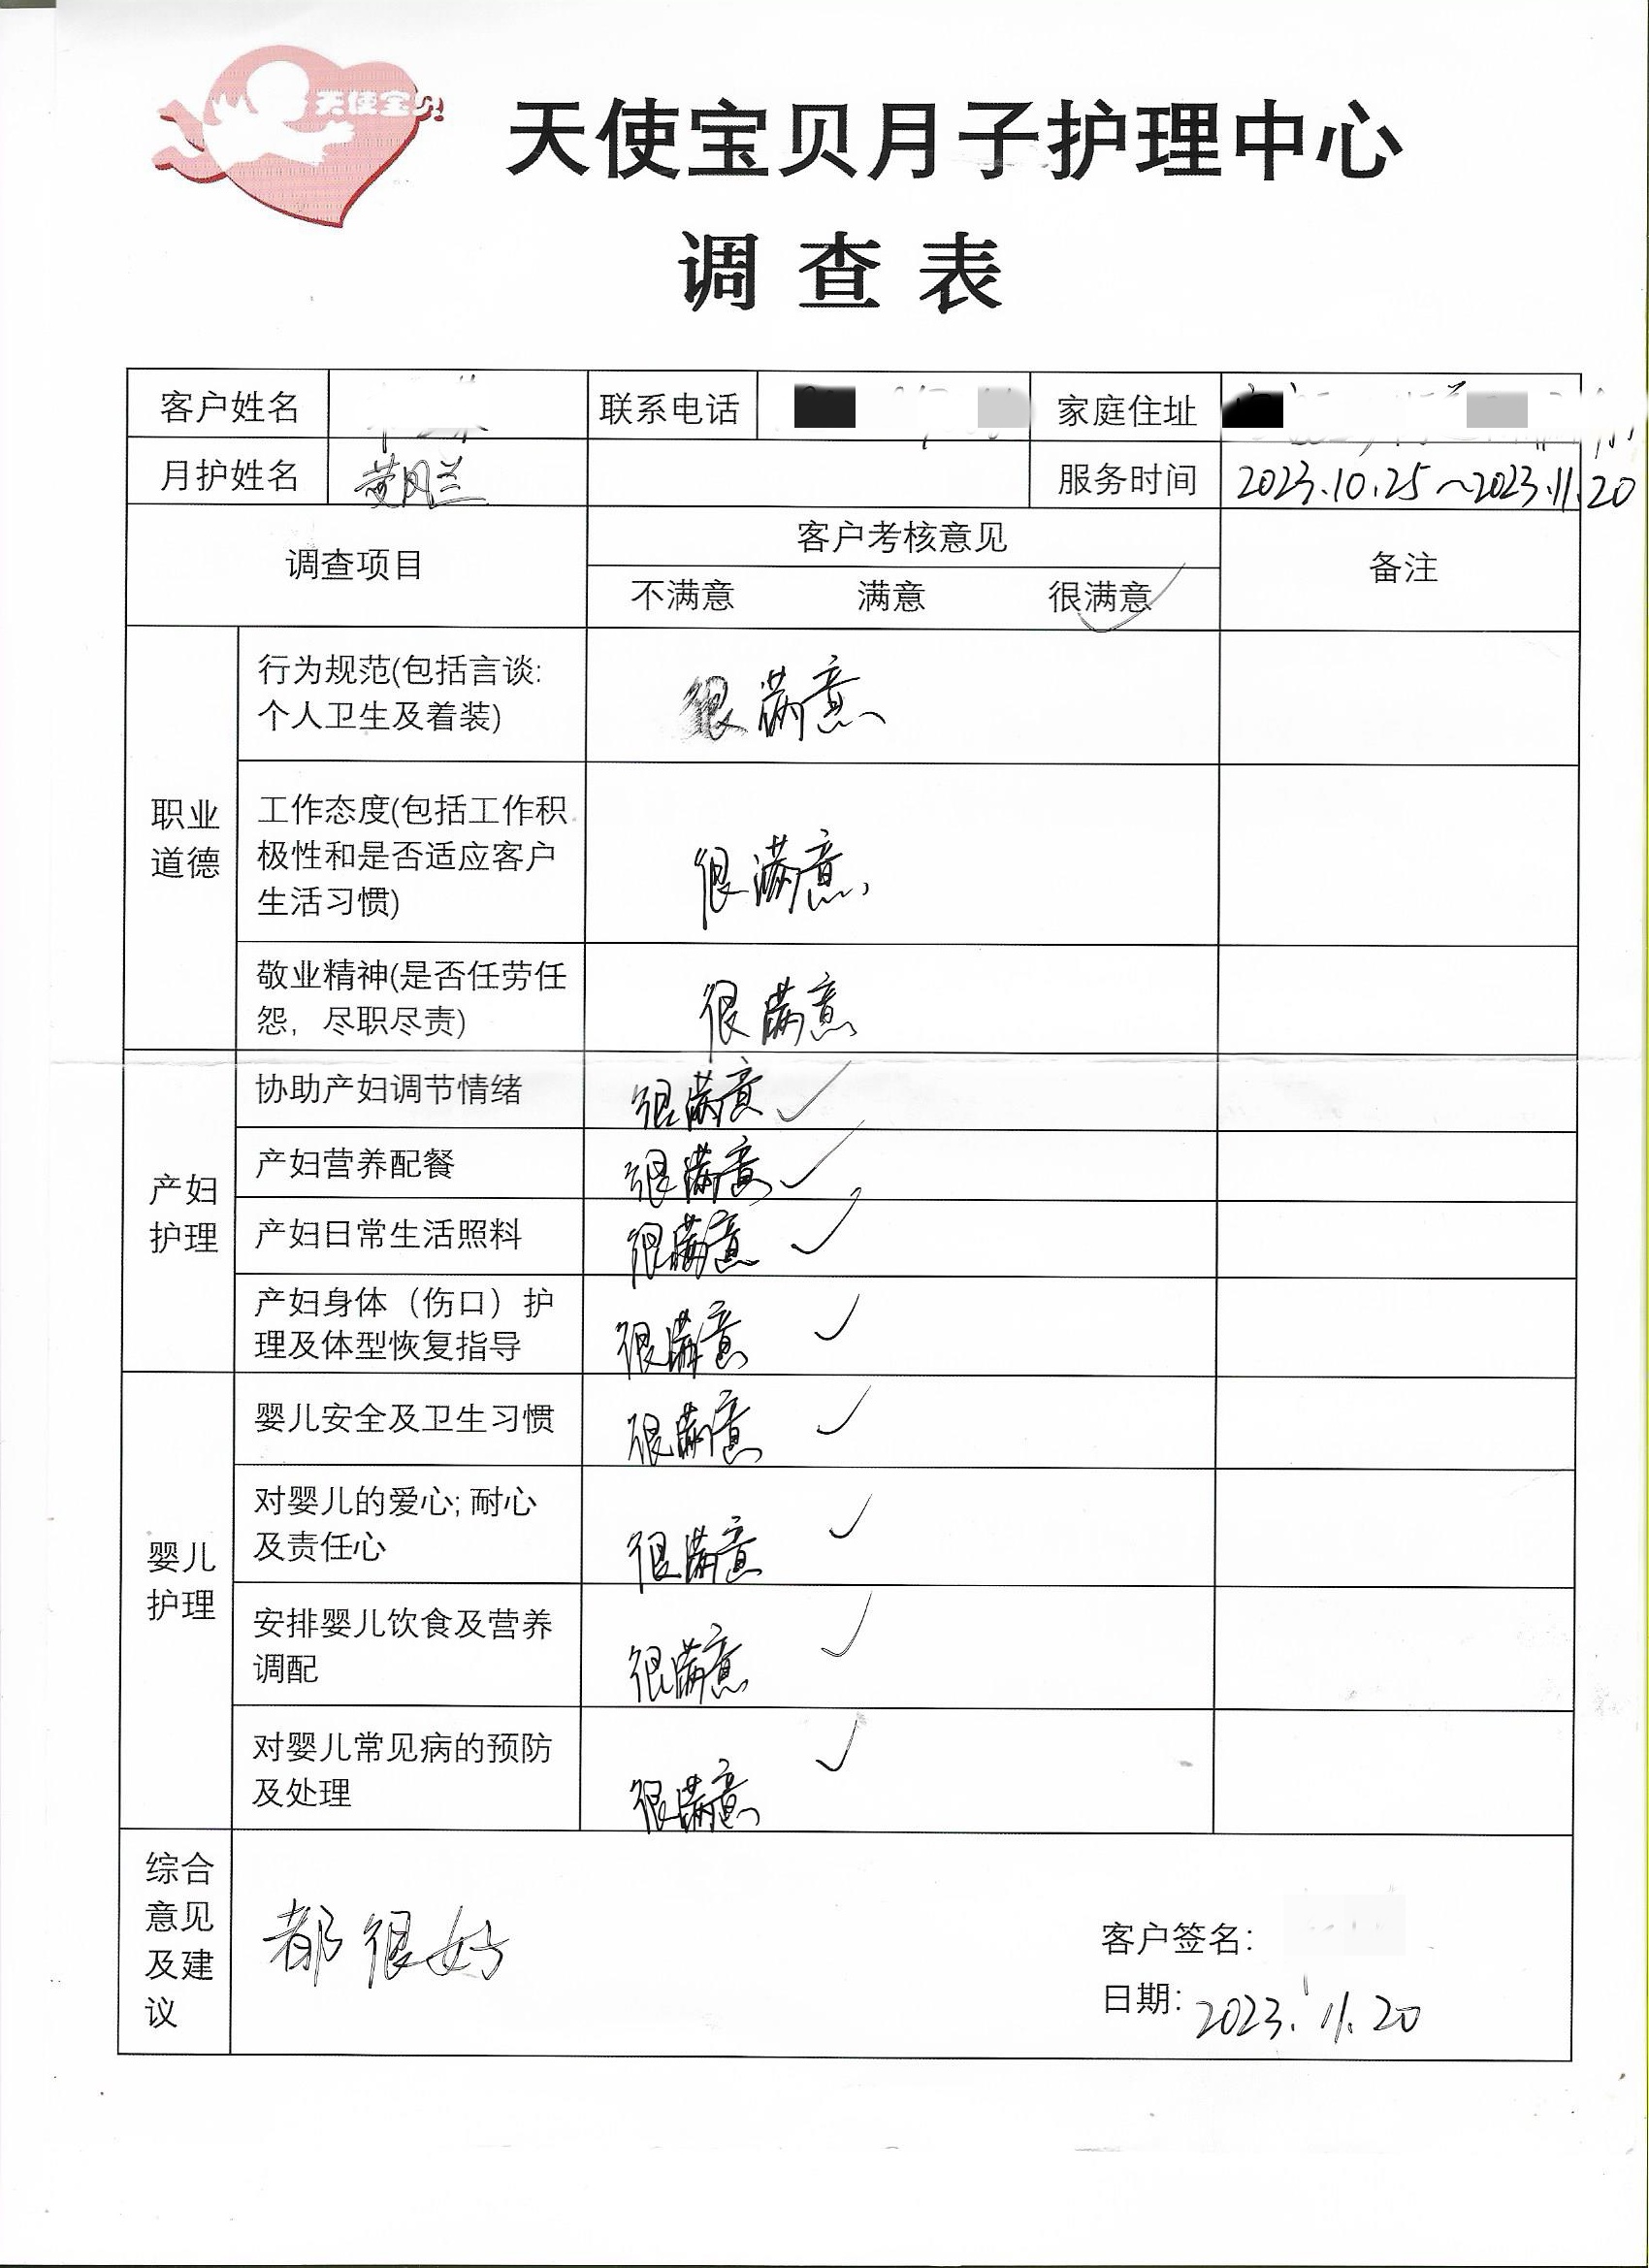 天使宝贝
天使宝贝月子护理中心
调查表
客户姓名 联系电话 家庭住址
月护姓名 黄凤兰 服务时间 2023.10.25~2023.11.20
调查项目 客户考核意见 备注
不满意 满意 很满意
职业
道德
行为规范(包括言谈:
个人卫生及着装)
很满意
工作态度(包括工作积
极性和是否适应客户
生活习惯)
很满意
敬业精神(是否任劳任
怨，尽职尽责)
很满意
产妇
护理
协助产妇调节情绪 很满意 ✓
产妇营养配餐 很满意 ✓
产妇日常生活照料 很满意 ✓
产妇身体（伤口）护
理及体型恢复指导
很满意 ✓
婴儿
护理
婴儿安全及卫生习惯 很满意 ✓
对婴儿的爱心; 耐心
及责任心
很满意 ✓
安排婴儿饮食及营养
调配
很满意 ✓
对婴儿常见病的预防
及处理
很满意 ✓
综合
意见
及建
议
都很好
客户签名:
日期: 2023.11.20